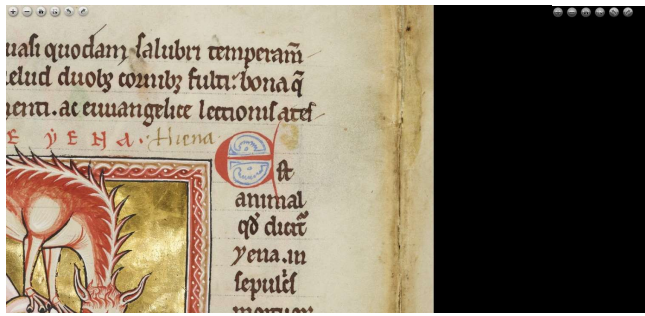 uasi quodam salubri temperam̄
elud duobꝫ cornibꝫ fulti. bona q̄
menti. ac euuangelice lectionis ates
E YENA. Hiena
Est
animal
qd̄ dicit̄
yena. in
sepulc̄s
mortuor